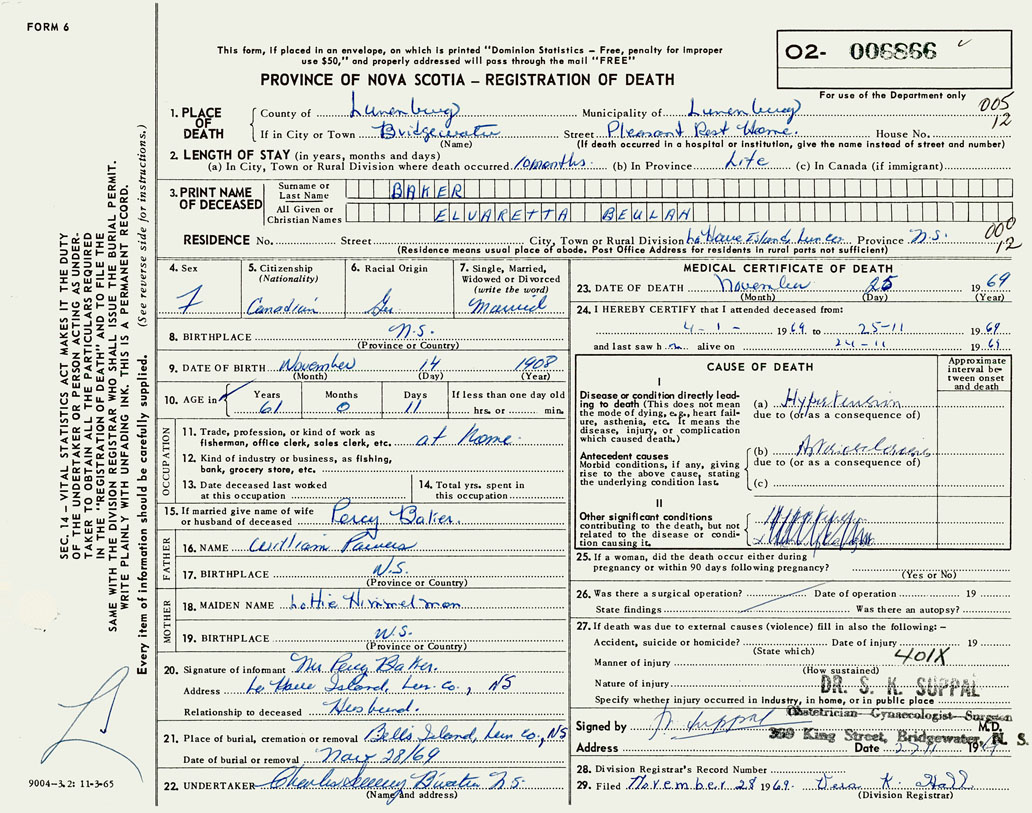 FORM 6
This form, if placed in an envelope, on which is printed "Dominion Statistics – Free, penalty for improper
use $50," and properly addressed will pass through the mail "FREE"
PROVINCE OF NOVA SCOTIA – REGISTRATION OF DEATH
O2- 006866
For use of the Department only
005
12
1. PLACE OF DEATH
County of Lunenburg Municipality of Lunenburg
If in City or Town Bridgewater Street Pleasant Rest Home. House No.
(Name) (If death occurred in a hospital or institution, give the name instead of street and number)
2. LENGTH OF STAY (in years, months and days)
(a) In City, Town or Rural Division where death occurred 10 months. (b) In Province Life (c) In Canada (if immigrant)
3. PRINT NAME OF DECEASED
Surname or Last Name BAKER
All Given or Christian Names ELVARETTA BEULAH
000
12
RESIDENCE No. Street City, Town or Rural Division La Have Island, Lun. co. Province N.S.
(Residence means usual place of abode. Post Office Address for residents in rural ports not sufficient)
4. Sex F
5. Citizenship (Nationality) Canadian
6. Racial Origin Ger
7. Single, Married, Widowed or Divorced (write the word) Married
8. BIRTHPLACE N.S.
(Province or Country)
9. DATE OF BIRTH November 14 1908
(Month) (Day) (Year)
10. AGE in Years 61 Months 0 Days 11 If less than one day old hrs. or min.
OCCUPATION
11. Trade, profession, or kind of work as
fisherman, office clerk, sales clerk, etc. at Home.
12. Kind of industry or business, as fishing,
bank, grocery store, etc.
13. Date deceased last worked
at this occupation
14. Total yrs. spent in
this occupation
15. If married give name of wife
or husband of deceased Percy Baker.
FATHER
16. NAME William
17. BIRTHPLACE N.S.
(Province or Country)
MOTHER
18. MAIDEN NAME Lottie Himmelman
19. BIRTHPLACE N.S.
(Province or Country)
20. Signature of informant Mr Percy Baker.
Address La Have Island, Lun. co., NS
Relationship to deceased Husband.
21. Place of burial, cremation or removal Bells Island, Lun co., NS
Date of burial or removal Nov 28/69
22. UNDERTAKER Charles N.S.
(Name and address)
MEDICAL CERTIFICATE OF DEATH
23. DATE OF DEATH November 25 1969
(Month) (Day) (Year)
24. I HEREBY CERTIFY that I attended deceased from:
4-1- 1969 to 25-11 1969
and last saw h er alive on 24-11 1969
CAUSE OF DEATH
Approximate interval between onset and death
I
Disease or condition directly lead-
ing to death (This does not mean
the mode of dying, e.g., heart fail-
ure, asthenia, etc. It means the
disease, injury, or complication
which caused death.)
(a) Hypertension
due to (or as a consequence of)
Antecedent causes
Morbid conditions, if any, giving
rise to the above cause, stating
the underlying condition last.
(b)
due to (or as a consequence of)
(c)
II
Other significant conditions
contributing to the death, but not
related to the disease or condi-
tion causing it.
25. If a woman, did the death occur either during
pregnancy or within 90 days following pregnancy?
(Yes or No)
26. Was there a surgical operation? Date of operation 19
State findings Was there an autopsy?
27. If death was due to external causes (violence) fill in also the following: –
Accident, suicide or homicide? Date of injury 19
(State which)
Manner of injury 401X
(How sustained)
Nature of injury DR. S. K. SUPPAL
Specify whether injury occurred in Industry, in home, or in public place
Obstetrician – Gynaecologist – Surgeon
Signed by Suppal M.D.
399 King Street, Bridgewater, N. S.
Address Date 19
28. Division Registrar's Record Number
29. Filed November 28 1969. Vera K. Hall
(Division Registrar)
SEC. 14 – VITAL STATISTICS ACT MAKES IT THE DUTY
OF THE UNDERTAKER OR PERSON ACTING AS UNDER-
TAKER TO OBTAIN ALL THE PARTICULARS REQUIRED
IN THE "REGISTRATION OF DEATH" AND TO FILE THE
SAME WITH THE DIVISION REGISTRAR WHO SHALL ISSUE THE BURIAL PERMIT.
WRITE PLAINLY WITH UNFADING INK. THIS IS A PERMANENT RECORD.
Every item of information should be carefully supplied. (See reverse side for instructions.)
9004-3.2: 11-3-65